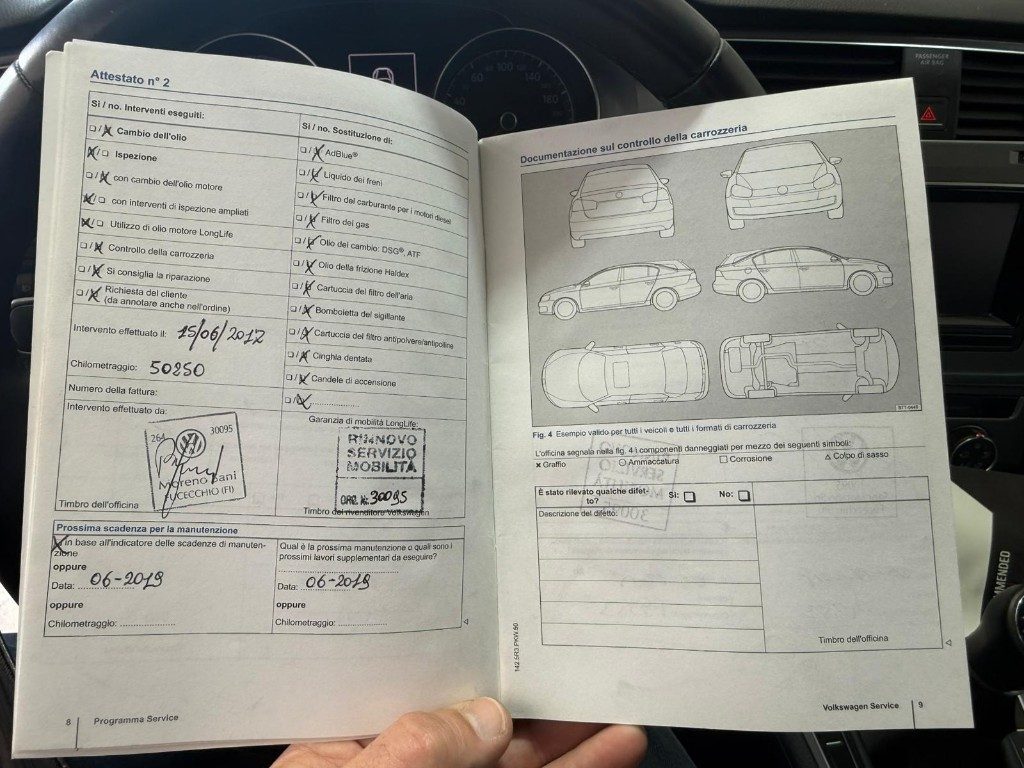 Attestato n° 2
Sì / no. Interventi eseguiti:
❏ / ❏ Cambio dell'olio
❏ / ❏ Ispezione
❏ / ❏ con cambio dell'olio motore
❏ / ❏ con interventi di ispezione ampliati
❏ / ❏ Utilizzo di olio motore LongLife
❏ / ❏ Controllo della carrozzeria
❏ / ❏ Si consiglia la riparazione
❏ / ❏ Richiesta del cliente
(da annotare anche nell'ordine)
Intervento effettuato il: 15/06/2017
Chilometraggio: 50250
Numero della fattura:
Intervento effettuato da:
264 30095
Moreno Bani
FUCECCHIO (FI)
Timbro dell'officina
Sì / no. Sostituzione di:
❏ / ❏ AdBlue®
❏ / ❏ Liquido dei freni
❏ / ❏ Filtro del carburante per i motori diesel
❏ / ❏ Filtro del gas
❏ / ❏ Olio del cambio: DSG®, ATF
❏ / ❏ Olio della frizione Haldex
❏ / ❏ Cartuccia del filtro dell'aria
❏ / ❏ Bomboletta del sigillante
❏ / ❏ Cartuccia del filtro antipolvere/antipolline
❏ / ❏ Cinghia dentata
❏ / ❏ Candele di accensione
❏ / ❏ ....................
Garanzia di mobilità LongLife:
RINNOVO
SERVIZIO
MOBILITÀ
ORG. Nr. 30095
Timbro del rivenditore Volkswagen
Prossima scadenza per la manutenzione
in base all'indicatore delle scadenze di manuten-
zione
oppure
Data: 06-2019
oppure
Chilometraggio: ....................
Qual è la prossima manutenzione o quali sono i
prossimi lavori supplementari da eseguire?
Data: 06-2019
oppure
Chilometraggio: ....................
8 Programma Service
Documentazione sul controllo della carrozzeria
B71-0449
Fig. 4 Esempio valido per tutti i veicoli e tutti i formati di carrozzeria
L'officina segnala nella fig. 4 i componenti danneggiati per mezzo dei seguenti simboli:
x Graffio O Ammaccatura □ Corrosione △ Colpo di sasso
È stato rilevato qualche difet-
to? Sì: ❏ No: ❏
Descrizione del difetto:
Timbro dell'officina
142.5R3.PKW.90
Volkswagen Service 9
PASSENGER
AIR BAG
60 100 140
180